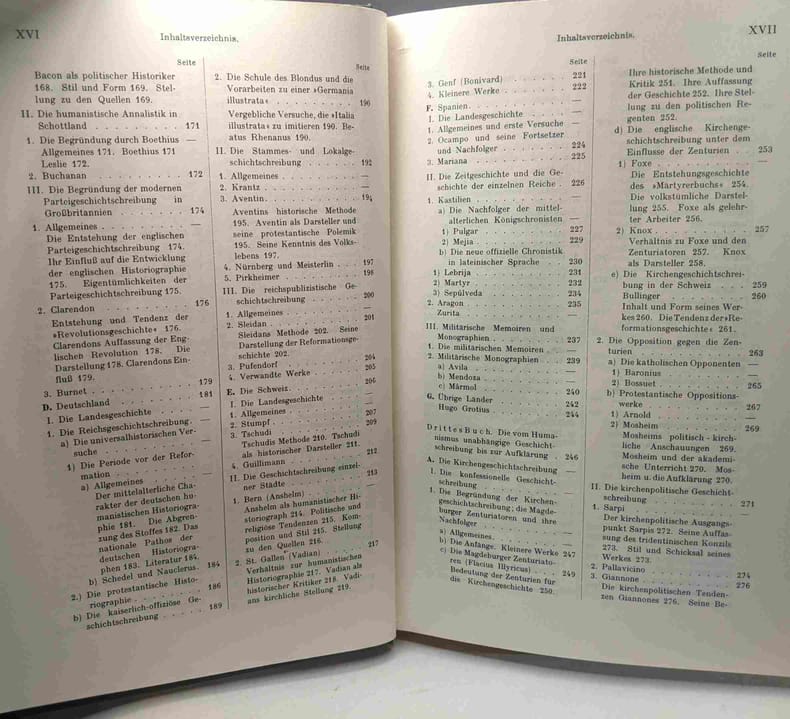 XVI
Inhaltsverzeichnis.
Seite
Bacon als politischer Historiker
168. Stil und Form 169. Stel-
lung zu den Quellen 169.
II. Die humanistische Annalistik in
Schottland . . . . . . . 171
1. Die Begründung durch Boethius —
Allgemeines 171. Boethius 171
Leslie 172.
2. Buchanan . . . . . . . 172
III. Die Begründung der modernen
Parteigeschichtschreibung in
Großbritannien . . . . . . 174
1. Allgemeines . . . . . . . —
Die Entstehung der englischen
Parteigeschichtschreibung 174.
Ihr Einfluß auf die Entwicklung
der englischen Historiographie
175. Eigentümlichkeiten der
Parteigeschichtschreibung 175.
2. Clarendon . . . . . . . 176
Entstehung und Tendenz der
»Revolutionsgeschichte« 176.
Clarendons Auffassung der Eng-
lischen Revolution 178. Die
Darstellung 178. Clarendons Ein-
fluß 179.
3. Burnet . . . . . . . 179
D. Deutschland . . . . . . . 181
I. Die Landesgeschichte . . . . . —
1. Die Reichsgeschichtschreibung. —
a) Die universalhistorischen Ver-
suche . . . . . . . —
1) Die Periode vor der Refor-
mation . . . . . . . —
a) Allgemeines . . . . . —
Der mittelalterliche Cha-
rakter der deutschen hu-
manistischen Historiogra-
phie 181. Die Abgren-
zung des Stoffes 182. Das
nationale Pathos der
deutschen Historiogra-
phen 183. Literatur 184.
b) Schedel und Nauclerus. 184
2.) Die protestantische Histo-
riographie . . . . . . 186
b) Die kaiserlich-offiziöse Ge-
schichtschreibung . . . . . 189
Seite
2. Die Schule des Blondus und die
Vorarbeiten zu einer »Germania
illustrata« . . . . . . . 190
Vergebliche Versuche, die »Italia
illustrata« zu imitieren 190. Be-
atus Rhenanus 190.
II. Die Stammes- und Lokalge-
schichtschreibung . . . . . 192
1. Allgemeines . . . . . . . —
2. Krantz . . . . . . . —
3. Aventin . . . . . . . 194
Aventins historische Methode
195. Aventin als Darsteller und
seine protestantische Polemik
195. Seine Kenntnis des Volks-
lebens 197.
4. Nürnberg und Meisterlin . . 197
5. Pirkheimer . . . . . . . 198
III. Die reichspublizistische Ge-
schichtschreibung . . . . . 200
1. Allgemeines . . . . . . . —
2. Sleidan . . . . . . . 201
Sleidans Methode 202. Seine
Darstellung der Reformationsge-
schichte 202.
3. Pufendorf . . . . . . . 204
4. Verwandte Werke . . . . 205
E. Die Schweiz. . . . . . . 206
I. Die Landesgeschichte . . . . . —
1. Allgemeines . . . . . . . —
2. Stumpf . . . . . . . 207
3. Tschudi . . . . . . . 209
Tschudis Methode 210. Tschudi
als historischer Darsteller 211.
4. Guillimann . . . . . . . 212
II. Die Geschichtschreibung einzel-
ner Städte . . . . . . . 213
1. Bern (Anshelm) . . . . . —
Anshelm als humanistischer Hi-
storiograph 214. Politische und
religiöse Tendenzen 215. Kom-
position und Stil 215. Stellung
zu den Quellen 216.
2. St. Gallen (Vadian) . . . . 217
Verhältnis zur humanistischen
Historiographie 217. Vadian als
historischer Kritiker 218. Vadi-
ans kirchliche Stellung 219.
Inhaltsverzeichnis.
XVII
Seite
3. Genf (Bonivard) . . . . . 221
4. Kleinere Werke . . . . . 222
F. Spanien. . . . . . . —
I. Die Landesgeschichte . . . . . —
1. Allgemeines und erste Versuche —
2. Ocampo und seine Fortsetzer
und Nachfolger . . . . . 224
3. Mariana . . . . . . . 225
II. Die Zeitgeschichte und die Ge-
schichte der einzelnen Reiche . 226
1. Kastilien . . . . . . . —
a) Die Nachfolger der mittel-
alterlichen Königschronisten —
1) Pulgar . . . . . . . 227
2) Mejia . . . . . . . 229
b) Die neue offizielle Chronistik
in lateinischer Sprache . . 230
1) Lebrija . . . . . . . 231
2) Martyr . . . . . . . 232
3) Sepúlveda . . . . . . 234
2. Aragon . . . . . . . 235
Zurita
III. Militärische Memoiren und
Monographien . . . . . . 237
1. Die militärischen Memoiren . . —
2. Militärische Monographien . . 239
a) Avila . . . . . . . —
b) Mendoza . . . . . . . —
c) Mármol . . . . . . . 240
G. Übrige Länder . . . . . . 242
Hugo Grotius . . . . . . 244
Drittes Buch. Die vom Huma-
nismus unabhängige Geschicht-
schreibung bis zur Aufklärung . 246
A. Die Kirchengeschichtschreibung —
I. Die konfessionelle Geschicht-
schreibung . . . . . . . —
1. Die Begründung der Kirchen-
geschichtschreibung; die Magde-
burger Zenturiatoren und ihre
Nachfolger . . . . . . . —
a) Allgemeines. . . . . . —
b) Die Anfänge. Kleinere Werke 247
c) Die Magdeburger Zenturiato-
ren (Flacius Illyricus) . . . 249
Bedeutung der Zenturien für
die Kirchengeschichte 250.
Seite
Ihre historische Methode und
Kritik 251. Ihre Auffassung
der Geschichte 252. Ihre Stel-
lung zu den politischen Re-
genten 252.
d) Die englische Kirchenge-
schichtschreibung unter dem
Einflusse der Zenturien . . 253
1) Foxe . . . . . . . —
Die Entstehungsgeschichte
des »Märtyrerbuchs« 254.
Die volkstümliche Darstel-
lung 255. Foxe als gelehr-
ter Arbeiter 256.
2) Knox . . . . . . . 257
Verhältnis zu Foxe und den
Zenturiatoren 257. Knox
als Darsteller 258.
e) Die Kirchengeschichtschrei-
bung in der Schweiz . . . 259
Bullinger . . . . . . . 260
Inhalt und Form seines Wer-
kes 260. Die Tendenz der »Re-
formationsgeschichte« 261.
2. Die Opposition gegen die Zen-
turien . . . . . . . 263
a) Die katholischen Opponenten —
1) Baronius . . . . . . . —
2) Bossuet . . . . . . . 265
b) Protestantische Oppositions-
werke . . . . . . . 267
1) Arnold . . . . . . . —
2) Mosheim . . . . . . . 269
Mosheims politisch-kirch-
liche Anschauungen 269.
Mosheim und der akademi-
sche Unterricht 270. Mos-
heim u. die Aufklärung 270.
II. Die kirchenpolitische Geschicht-
schreibung . . . . . . . 271
1. Sarpi . . . . . . . —
Der kirchenpolitische Ausgangs-
punkt Sarpis 272. Seine Auffas-
sung des tridentinischen Konzils
273. Stil und Schicksal seines
Werkes 273.
2. Pallavicino . . . . . . . 274
3. Giannone . . . . . . . 276
Die kirchenpolitischen Tenden-
zen Giannones 276. Seine Be-